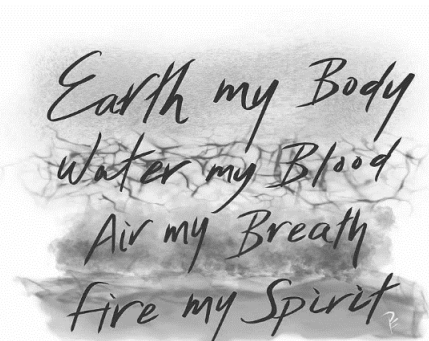 Earth my Body
Water my Blood
Air my Breath
fire my Spirit